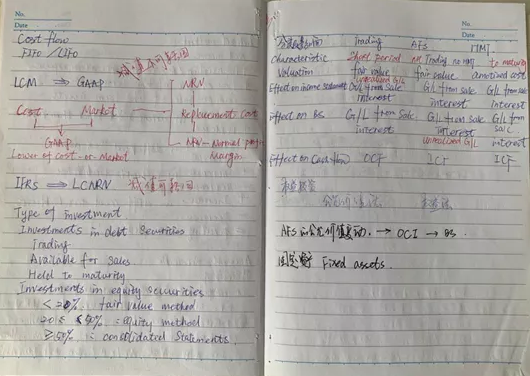 No.
Date
Cost flow
FIFO / LIFO
减值可转回
LCM ⇒ GAAP
NRV
Cost Market
Replacement cost
GAAP
NRV - Normal profit
Margin
Lower of cost or Market
IFRS ⇒ LCNRV 减值可转回
Type of investment
Investments in debt Securities
Trading
Available for Sales
Held To maturity
Investments in equity securities
< 20% fair value method
20% ≤ 50% = equity method
≥ 50% = consolidated statements
No.
Date
Trading AFS HTM
Characteristic Short period not Trading no HTM to maturity
Valuation fair value fair value amotized cost
unrealized G/L
Effect on income statement G/L from Sale G/L from Sale G/L from
interest interest Interest
Effect on BS G/L from Sale G/L from Sale G/L from
Interest Interest Sale
unrealized G/L interest
Effect on Cash flow OCF ICF ICF
AFS 公允价值变动 → OCI → BS.
固定资产 Fixed assets.